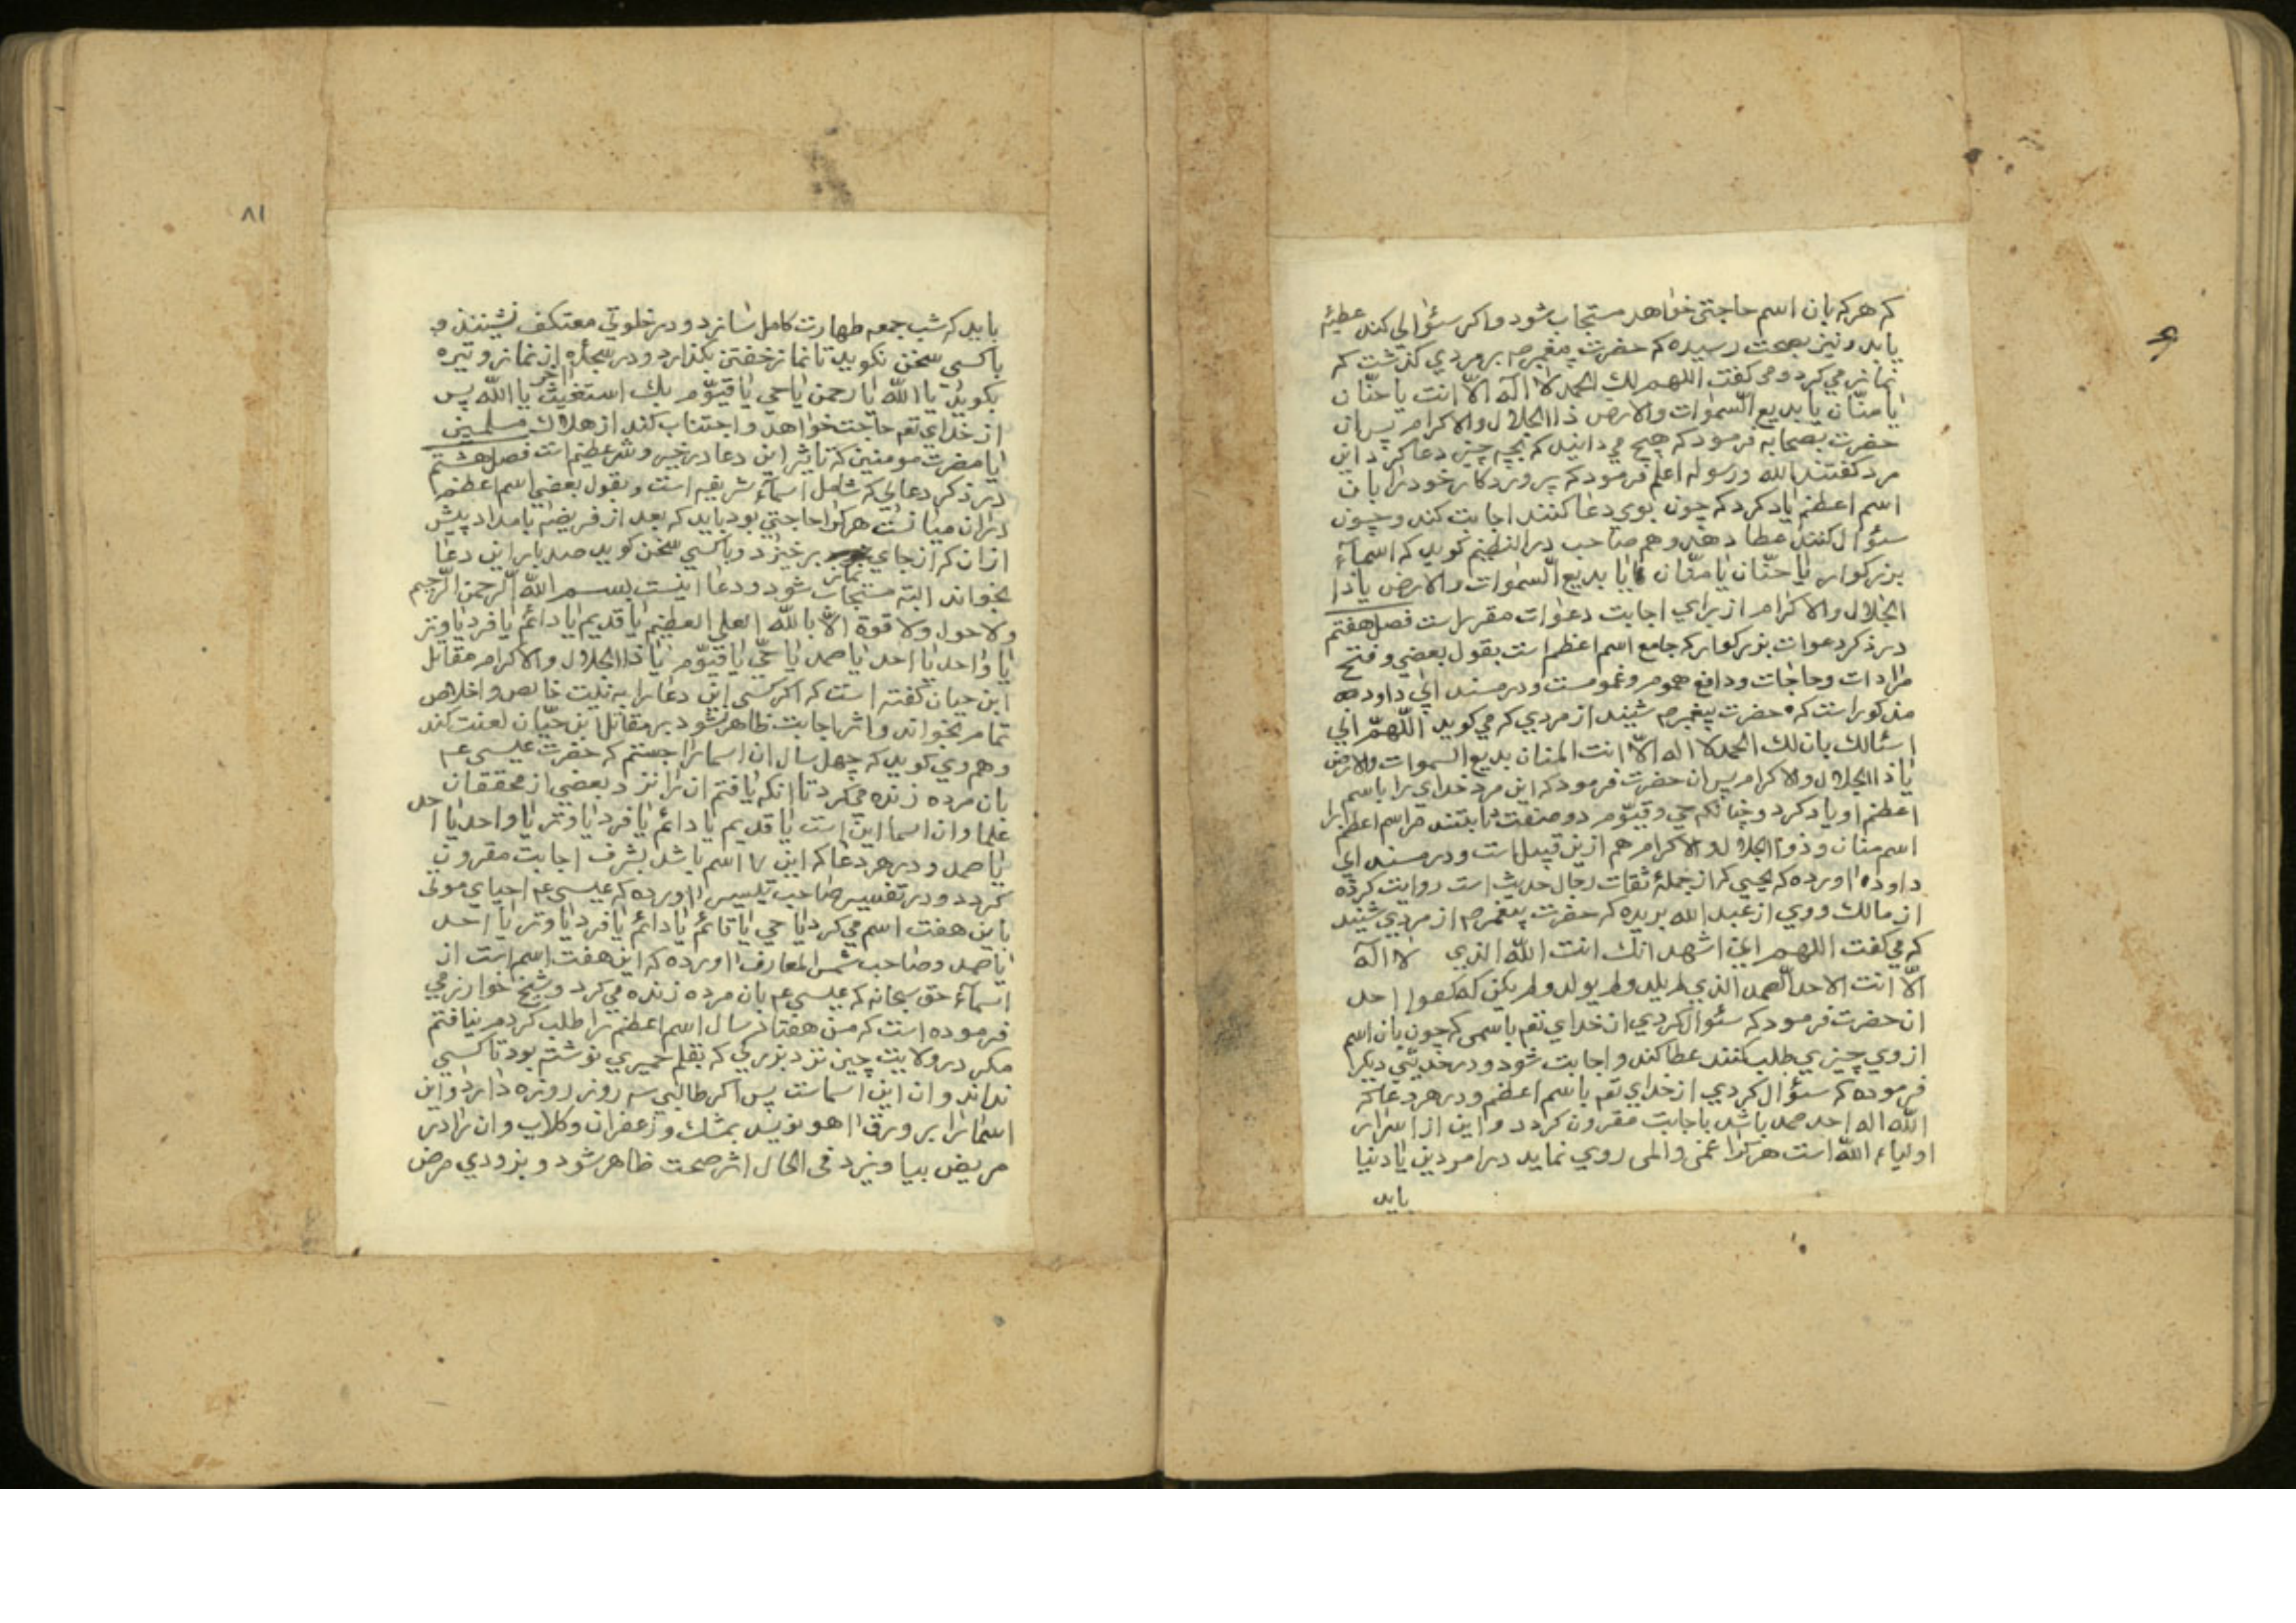 که هر که بان اسم حاجتی خواهد مستجاب شود واکر سئوالی کند عطیّه
یابد ونیز بصحت رسیده که حضرت پیغمبر صم بر مردی کذشت که
نماز می کرد ومی کفت اللهم لك الحمد لا اله الّا انت یا حنّان
یا منّان یا بدیع السّموات والارض ذا الجلال والاکرام پس ان
حضرت بصحابه فرمود که هیچ می دانید که بچه چیز دعا کرد این
مرد کفتند الله ورسوله اعلم فرمود که پروردکار خود را بان
اسم اعظم یاد کرد که چون بوی دعا کنند اجابت کند وچون
سئوال کنند عطا دهد وهم صاحب در النظیم کوید که اسمآء
بزرکوار یا حنّان یا منّان یا بدیع السّموات والارض یا ذا
الجلال والاکرام از برای اجابت دعوات مقرر است فصل هفتم
در ذکر دعوات بزرکوار که جامع اسم اعظم است بقول بعضی وفتح
مرادات وحاجات ودافع هموم وغمومست ودر مسند ابی داود
مذکور است که حضرت پیغمبر صم شنید از مردی که می کوید اللّهمّ انی
اسئالك بان لك الحمد لا اله الّا انت المنان بدیع السموات والارض
یا ذا الجلال والاکرام پس ان حضرت فرمود که این مرد خدای را باسم
اعظم او یاد کرد وچنانکه حی وقیّوم دو صفت ثابتند مر اسم اعظم را
اسم منان وذو الجلال والاکرام هم ازین قبیل است ودر مسند ابی
داود اورده که یحیی که از جملهٔ ثقات رجال حدیث است روایت کرده
از مالك ووی از عبد الله بریده که حضرت پیغمبر صم از مردی شنید
که می کفت اللهم انی اشهد انك انت اللّه الذی لا اله
الّا انت الاحد الصّمد الذی لم یلد ولم یولد ولم یکن له کفوا احد
ان حضرت فرمود که سئوال کردی از خدای تعم باسمی که چون بان اسم
از وی چیزی طلب کنند عطا کند واجابت شود ودر حدیثی دیکر
فرموده که سئوال کردی از خدای تعم باسم اعظم ودر هر دعا که
اللّه اله احد صمد باشد باجابت مقرون کردد واین از اسرار
اولیاء اللّه است هر کرا غمی والمی روی نماید در امور دین یا دنیا
باید
۸۱
باید که شب جمعه طهارت کامل سازد ودر خلوتی معتکف نشیند و
باکسی سخن نکوید تا نماز خفتن بکذارد ودر سجدهٔ اخر از نماز وتیره
بکوید یا اللّه یا رحمن یا حی یا قیّوم بك استغیث یا اللّه پس
از خدای تعم حاجت خواهد واجتناب کند از هلاك مسلمین
یا مضرت مومنین که تاثیر این دعا در خیر وشر عظیم است فصل هشتم
در ذکر دعایی که شامل اسمآء شریفه است وبقول بعضی اسم اعظم
در ان میانست هر کرا حاجتی بود باید که بعد از فریضهٔ بامداد پیش
از ان که از جای نماز برخیزد وباکسی سخن کوید صد بار این دعا
بخواند البته مستجاب شود ودعا اینست بسم اللّه الرّحمن الرّحیم
ولا حول ولا قوة الّا باللّه العلی العظیم یا قدیم یا دائم یا فرد یا وتر
یا واحد یا احد یا صمد یا حیّ یا قیّوم یا ذا الجلال والاکرام مقاتل
ابن حیان کفته است که اکر کسی این دعا را به نیت خالص واخلاص
تمام بخواند واثر اجابت ظاهر نشود بر مقاتل ابن حیّان لعنت کند
وهم وی کوید که چهل سال ان اسما را جستم که حضرت عیسی عم
بان مرده زنده می کرد تا انکه یافتم ان را نزد بعضی از محققان
علما وان اسما این است یا قدیم یا دائم یا فرد یا وتر یا واحد یا احد
یا صمد ودر هر دعا که این ۷ اسم باشد بشرف اجابت مقرون
کردد ودر تفسیر صاحب تیسیر اورده که عیسی عم احیای موتی
باین هفت اسم می کرد یا حی یا قائم یا دائم یا فرد یا وتر یا احد
یا صمد وصاحب شمس المعارف اورده که این هفت اسم است از
اسمآء حق سبحانه که عیسی عم بان مرده زنده می کرد وشیخ خوارزمی
فرموده است که من هفتاد سال اسم اعظم را طلب کردم نیافتم
مکر در ولایت چین نزد بزرکی که بقلم حمیری نوشته بود تا کسی
نداند وان این اسماست پس اکر طالبی سه روز روزه دارد واین
اسما را بر ورق اهو نویسد بمشك وزعفران وکلاب وان را در
مریض بیاویزد فی الحال اثر صحت ظاهر شود وبزودی مرض